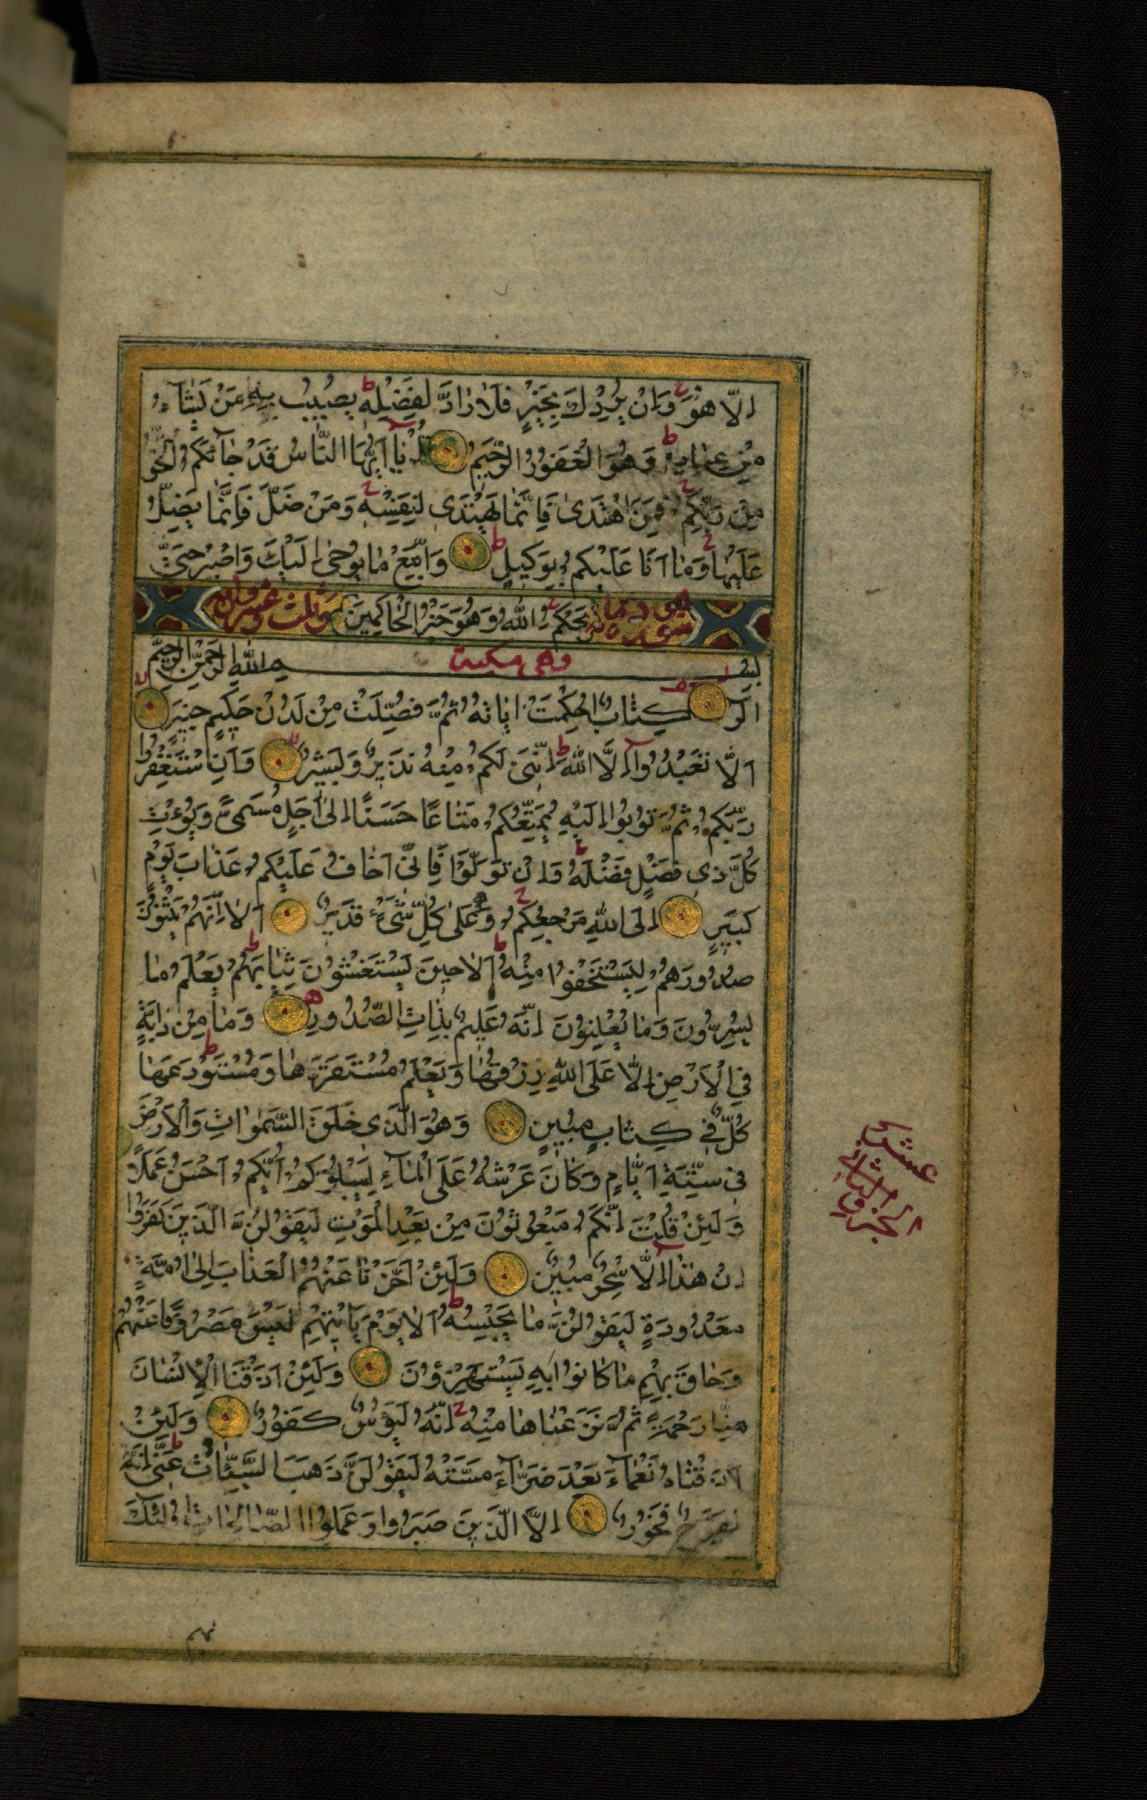 اِلَّا هُوَ وَاِنْ يُرِدْكَ بِخَيْرٍ فَلَا رَادَّ لِفَضْلِهٖ يُصٖيبُ بِهٖ مَنْ يَشَآءُ
مِنْ عِبَادِهٖ وَهُوَ الْغَفُورُ الرَّحٖيمُ قُلْ يَآ اَيُّهَا النَّاسُ قَدْ جَآئَكُمُ الْحَقُّ
مِنْ رَبِّكُمْ فَمَنِ اهْتَدٰى فَاِنَّمَا يَهْتَدٖى لِنَفْسِهٖ وَمَنْ ضَلَّ فَاِنَّمَا يَضِلُّ
عَلَيْهَا وَمَا اَنَا عَلَيْكُمْ بِوَكٖيلٍ وَاتَّبِعْ مَا يُوحٰى اِلَيْكَ وَاصْبِرْ حَتّٰى
سورة هود مائة يَحْكُمَ اللّٰهُ وَهُوَ خَيْرُ الْحَاكِمٖينَ وثلث وعشرون اية
وهى مكية
بِسْمِ اللّٰهِ الرَّحْمٰنِ الرَّحٖيمِ
الٓرٰ كِتَابٌ اُحْكِمَتْ اٰيَاتُهُ ثُمَّ فُصِّلَتْ مِنْ لَدُنْ حَكٖيمٍ خَبٖيرٍ
اَلَّا تَعْبُدُوآ اِلَّا اللّٰهَ اِنَّنٖى لَكُمْ مِنْهُ نَذٖيرٌ وَبَشٖيرٌ وَاَنِ اسْتَغْفِرُوا
رَبَّكُمْ ثُمَّ تُوبُوا اِلَيْهِ يُمَتِّعْكُمْ مَتَاعًا حَسَنًا اِلٰى اَجَلٍ مُسَمًّى وَيُؤْتِ
كُلَّ ذٖى فَضْلٍ فَضْلَهُ وَاِنْ تَوَلَّوْا فَاِنّٖى اَخَافُ عَلَيْكُمْ عَذَابَ يَوْمٍ
كَبٖيرٍ اِلَى اللّٰهِ مَرْجِعُكُمْ وَهُوَ عَلٰى كُلِّ شَىْءٍ قَدٖيرٌ اَلَا اِنَّهُمْ يَثْنُونَ
صُدُورَهُمْ لِيَسْتَخْفُوا مِنْهُ اَلَا حٖينَ يَسْتَغْشُونَ ثِيَابَهُمْ يَعْلَمُ مَا
يُسِرُّونَ وَمَا يُعْلِنُونَ اِنَّهُ عَلٖيمٌ بِذَاتِ الصُّدُورِ وَمَا مِنْ دَابَّةٍ
فِى الْاَرْضِ اِلَّا عَلَى اللّٰهِ رِزْقُهَا وَيَعْلَمُ مُسْتَقَرَّهَا وَمُسْتَوْدَعَهَا
كُلٌّ فٖى كِتَابٍ مُبٖينٍ وَهُوَ الَّذٖى خَلَقَ السَّمٰوَاتِ وَالْاَرْضَ
فٖى سِتَّةِ اَيَّامٍ وَكَانَ عَرْشُهُ عَلَى الْمَآءِ لِيَبْلُوَكُمْ اَيُّكُمْ اَحْسَنُ عَمَلًا
وَلَئِنْ قُلْتَ اِنَّكُمْ مَبْعُوثُونَ مِنْ بَعْدِ الْمَوْتِ لَيَقُولَنَّ الَّذٖينَ كَفَرُوا
اِنْ هٰذَآ اِلَّا سِحْرٌ مُبٖينٌ وَلَئِنْ اَخَّرْنَا عَنْهُمُ الْعَذَابَ اِلٰى اُمَّةٍ
مَعْدُودَةٍ لَيَقُولُنَّ مَا يَحْبِسُهُ اَلَا يَوْمَ يَاْتٖيهِمْ لَيْسَ مَصْرُوفًا عَنْهُمْ
وَحَاقَ بِهِمْ مَا كَانُوا بِهٖ يَسْتَهْزِؤُنَ وَلَئِنْ اَذَقْنَا الْاِنْسَانَ
مِنَّا رَحْمَةً ثُمَّ نَزَعْنَاهَا مِنْهُ اِنَّهُ لَيَؤُسٌ كَفُورٌ وَلَئِنْ
اَذَقْنَاهُ نَعْمَآءَ بَعْدَ ضَرَّآءَ مَسَّتْهُ لَيَقُولَنَّ ذَهَبَ السَّيِّئَاتُ عَنّٖى اِنَّهُ
لَفَرِحٌ فَخُورٌ اِلَّا الَّذٖينَ صَبَرُوا وَعَمِلُوا الصَّالِحَاتِ اُولٰئِكَ
لهم
الجزو الثانى
عشر